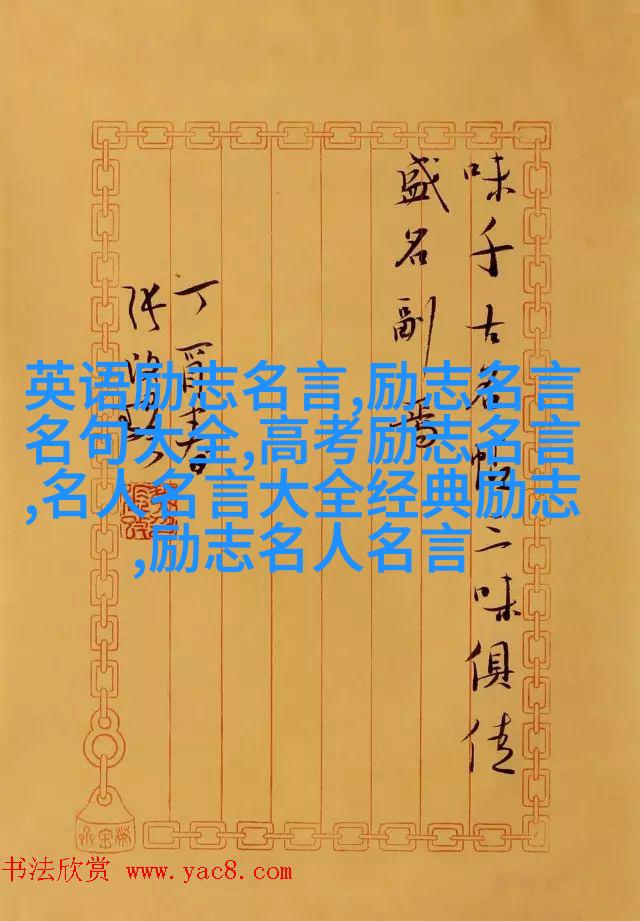 味千古名帖二味俱佳
盛名副焉
丁酉春
英语励志名言,励志名言
名句大全,高考励志名言
,名人名言大全经典励志
,励志名人名言
书法欣赏 www.yac8.com